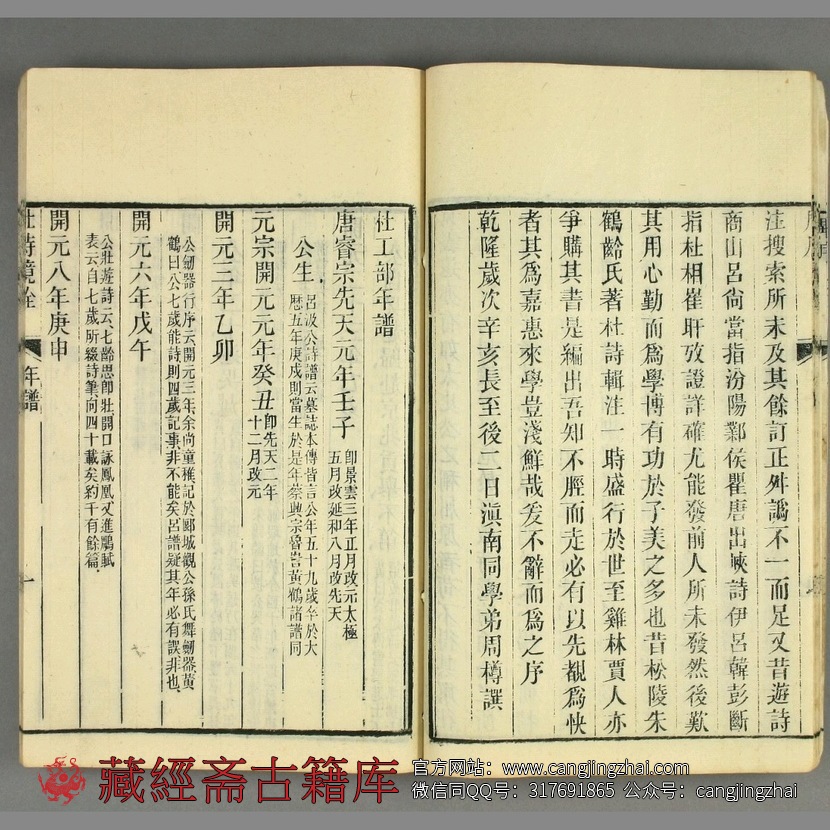 注搜索所未及其餘訂正舛譌不一而足又昔遊詩
商山呂尙當指汾陽鄴侯瞿唐出峽詩伊呂韓彭斷
指杜相崔旰攷證詳確尤能發前人所未發然後歎
其用心勤而爲學博有功於子美之多也昔松陵朱
鶴齡氏著杜詩輯注一時盛行於世至雞林賈人亦
爭購其書是編出吾知不脛而走必有以先覩爲快
者其爲嘉惠來學豈淺鮮哉爰不辭而爲之序
乾隆歲次辛亥長至後二日滇南同學弟周樽譔
杜工部年譜
唐睿宗先天元年壬子
卽景雲三年正月改元太極
五月改延和八月改先天
公生
呂汲公詩譜云墓誌本傳皆言公年五十九歲卒於大
曆五年庚戌則當生於是年蔡興宗魯訔黃鶴諸譜同
元宗開元元年癸丑
卽先天二年
十二月改元
開元三年乙卯
公劒器行序云開元三年余尚童穉記於郾城觀公孫氏舞劒器黃
鶴曰公七歲能詩則四歲記事非不能矣呂譜疑其年必有誤非也
開元六年戊午
公壯遊詩云七齡思卽壯開口詠鳳凰又進鵰賦
表云自七歲所綴詩筆向四十載矣約千有餘篇
開元八年庚申
杜詩鏡銓
年譜
一
藏經斋古籍库
官方网站：www.cangjingzhai.com
微信同QQ号：317691865 公众号：cangjingzhai